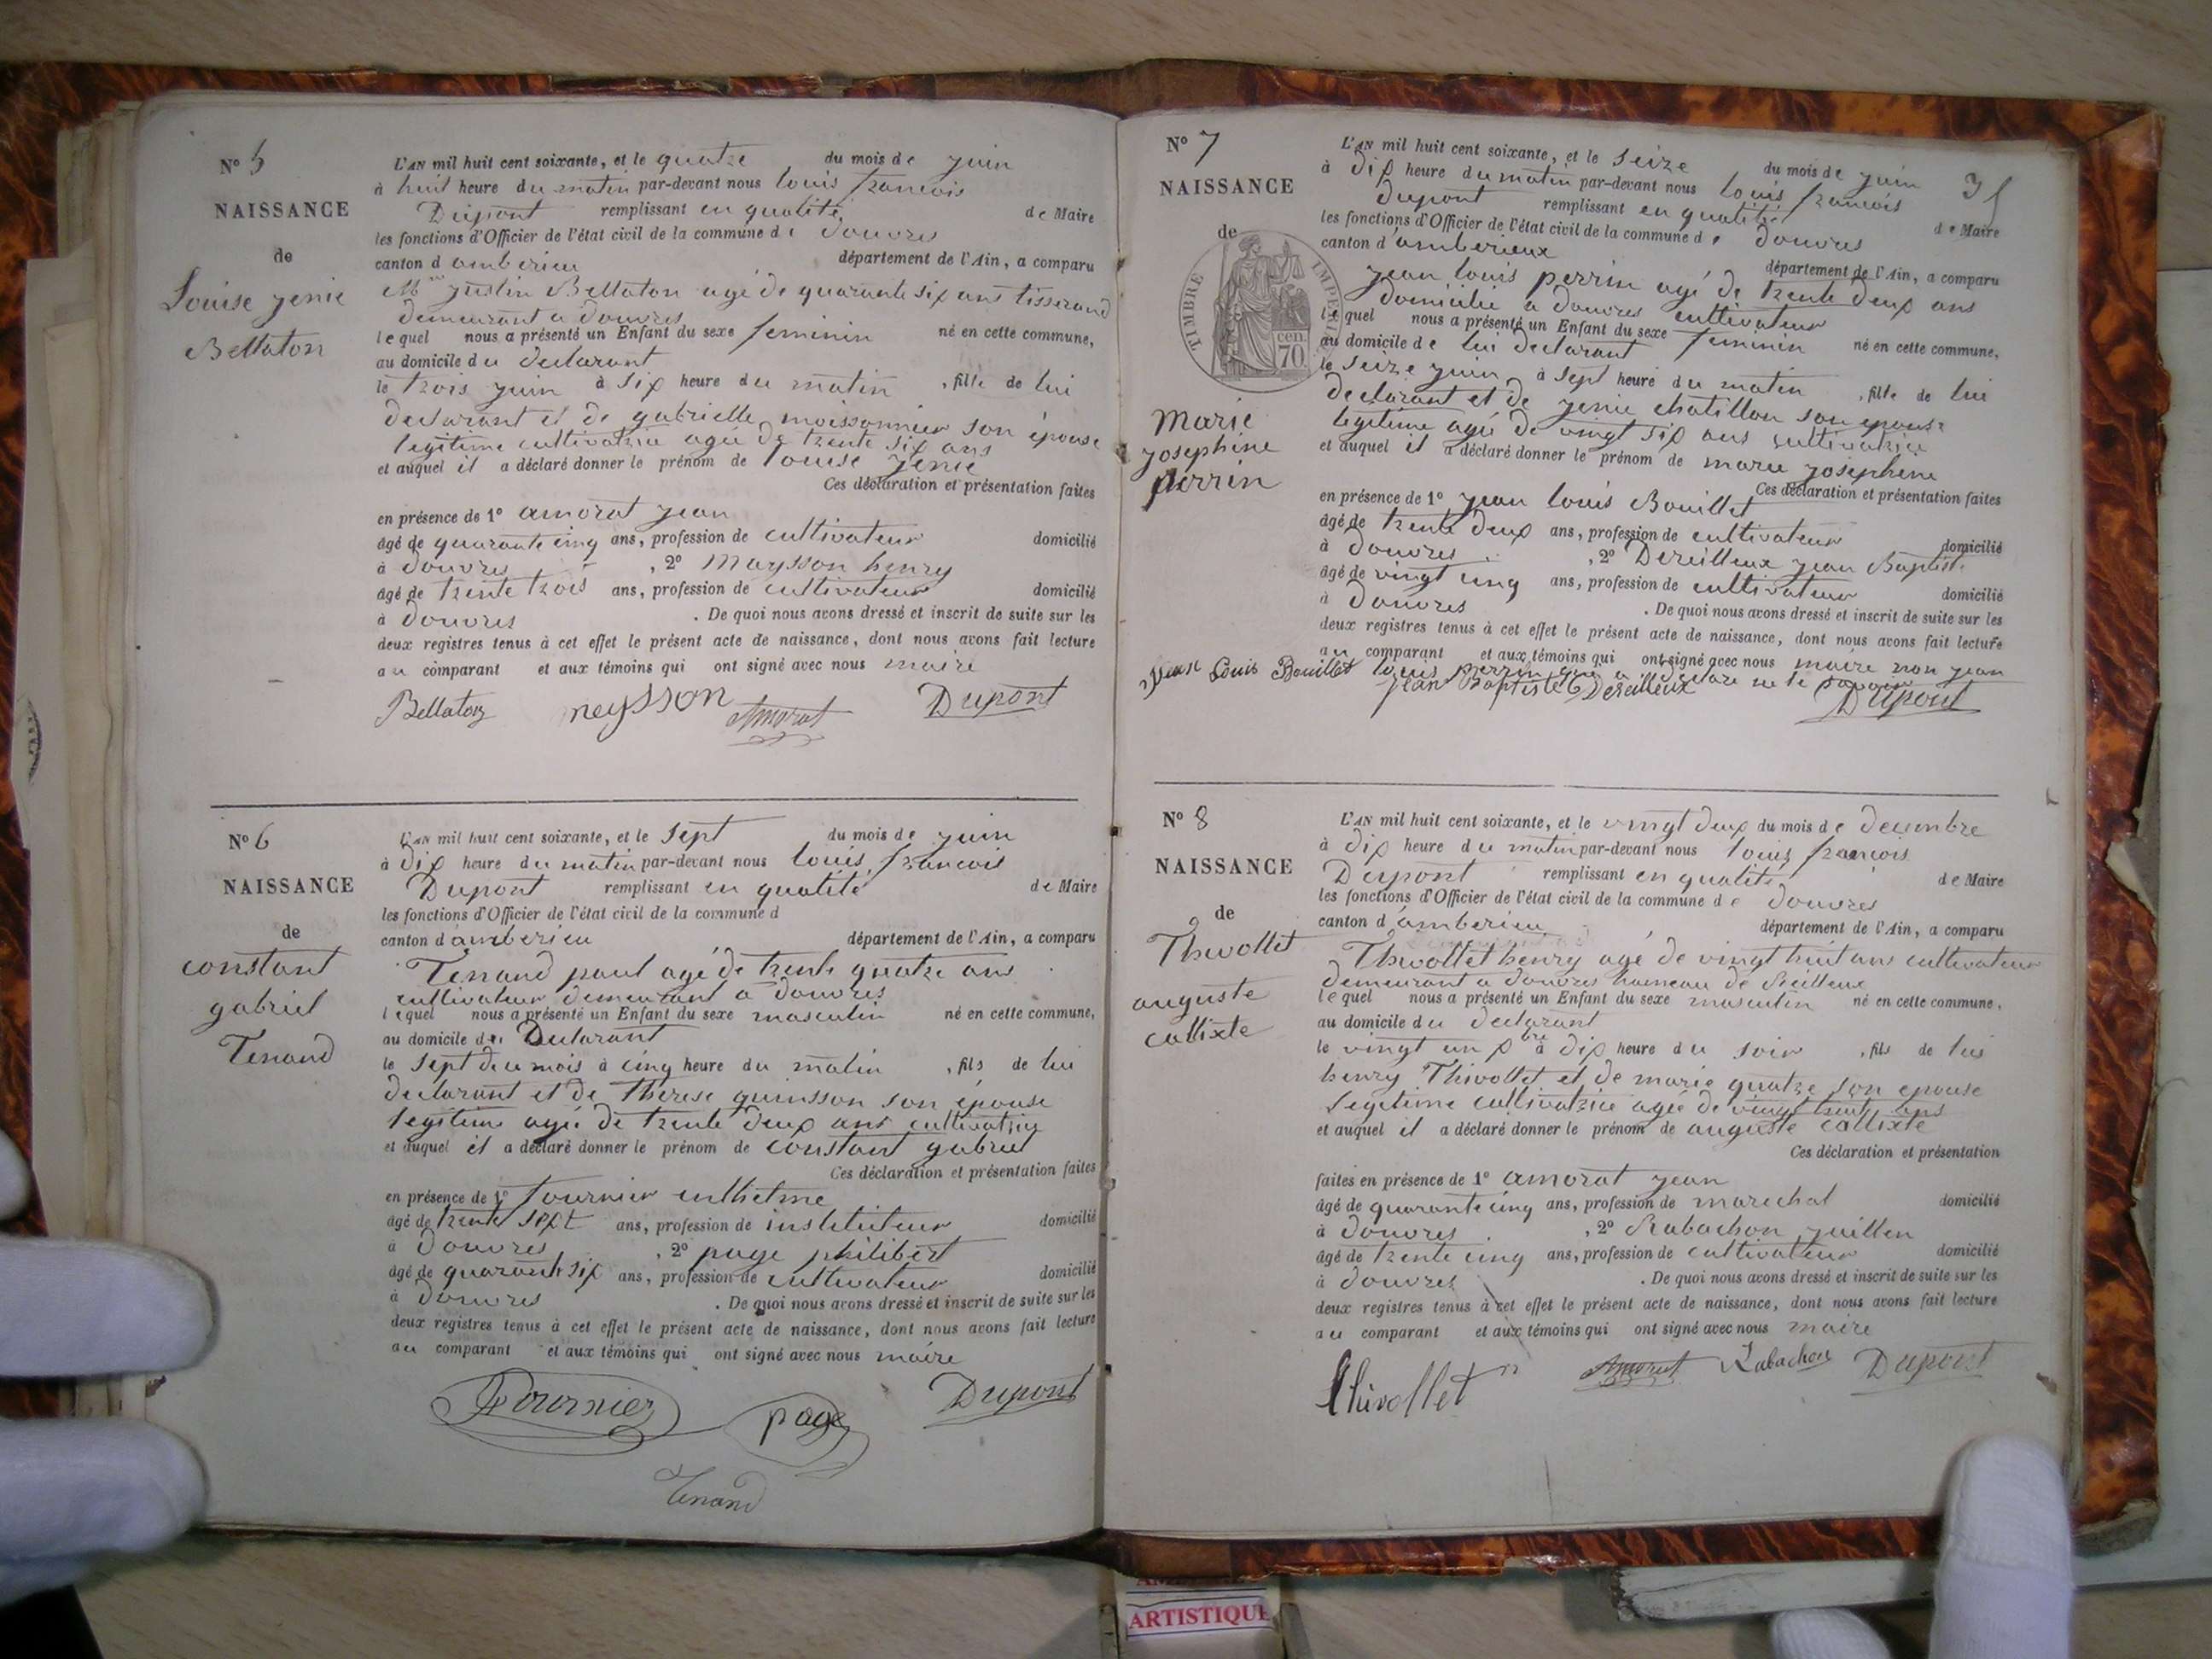 N° 5
NAISSANCE
de
Louise jenie
Bellaton
L'AN mil huit cent soixante, et le quatre du mois de juin
à huit heure du matin par-devant nous louis francois
Dupont remplissant en qualité de Maire
les fonctions d'Officier de l'état civil de la commune de douvres
canton d'amberieu département de l'Ain, a comparu
justin Bellaton agé de quarante six ans tisserand
demeurant a douvres
lequel nous a présenté un Enfant du sexe feminin né en cette commune,
au domicile du declarant
le trois juin à six heure du matin , fille de lui
declarant et de gabrielle moissonnier son épouse
legitime cultivatrice agée de trente six ans
et auquel il a déclaré donner le prénom de louise jenie
Ces déclaration et présentation faites
en présence de 1° amorat jean
âgé de quarante cinq ans, profession de cultivateur domicilié
à douvres , 2° Maysson henry
âgé de trente trois ans, profession de cultivateur domicilié
à douvres . De quoi nous avons dressé et inscrit de suite sur les
deux registres tenus à cet effet le présent acte de naissance, dont nous avons fait lecture
au comparant et aux témoins qui ont signé avec nous maire
Bellaton neysson Amorat Dupont
N° 6
NAISSANCE
de
constant
gabriel
Tenand
L'AN mil huit cent soixante, et le sept du mois de juin
à dix heure du matin par-devant nous louis francois
Dupont remplissant en qualité de Maire
les fonctions d'Officier de l'état civil de la commune d
canton d'amberieu département de l'Ain, a comparu
Tenand paul agé de trente quatre ans
cultivateur demeurant a douvres
lequel nous a présenté un Enfant du sexe masculin né en cette commune,
au domicile du Declarant
le sept du mois à cinq heure du matin , fils de lui
declarant et de therese guinsson son épouse
legitime agée de trente deux ans cultivatrice
et auquel il a déclaré donner le prénom de constant gabriel
Ces déclaration et présentation faites
en présence de 1° fournier
âgé de trente sept ans, profession de instituteur domicilié
à douvres , 2° page philibert
âgé de quarante six ans, profession de cultivateur domicilié
à douvres . De quoi nous avons dressé et inscrit de suite sur les
deux registres tenus à cet effet le présent acte de naissance, dont nous avons fait lecture
au comparant et aux témoins qui ont signé avec nous maire
Fournier page Dupont
Tenand
N° 7
NAISSANCE
de
TIMBRE IMPERIAL
cen.
70
marie
josephine
perrin
L'AN mil huit cent soixante, et le seize du mois de juin
à dix heure du matin par-devant nous louis francois
dupont remplissant en qualité de Maire
les fonctions d'Officier de l'état civil de la commune de douvres
canton d'amberieux département de l'Ain, a comparu
jean louis perrin agé de trente deux ans
domicilié a douvres cultivateur
lequel nous a présenté un Enfant du sexe feminin né en cette commune,
au domicile de lui declarant
le seize juin à sept heure du matin , fille de lui
declarant et de jenie chatillon son epouse
legitime agée de vingt six ans cultivatrice
et auquel il a déclaré donner le prénom de marie josephine
Ces déclaration et présentation faites
en présence de 1° jean louis Bouillet
âgé de trente deux ans, profession de cultivateur domicilié
à douvres , 2° Dereilleux jean Baptiste
âgé de vingt cinq ans, profession de cultivateur domicilié
à douvres . De quoi nous avons dressé et inscrit de suite sur les
deux registres tenus à cet effet le présent acte de naissance, dont nous avons fait lecture
au comparant et aux témoins qui ont signé avec nous maire non jean
louis perrin qui a declare ne le savoir
jean Louis Bouillet Jean Baptiste Dereilleux Dupont
N° 8
NAISSANCE
de
Thivollet
auguste
callixte
L'AN mil huit cent soixante, et le vingt deux du mois de decembre
à dix heure du matin par-devant nous louis francois
Dupont remplissant en qualité de Maire
les fonctions d'Officier de l'état civil de la commune de douvres
canton d'amberieu département de l'Ain, a comparu
Thivollet henry agé de vingt huit ans cultivateur
demeurant a douvres hameau de
lequel nous a présenté un Enfant du sexe masculin né en cette commune,
au domicile du declarant
le vingt un Xbre à dix heure du soir , fils de lui
henry Thivollet et de marie quatre son epouse
legitime cultivatrice agée de vingt huit ans
et auquel il a déclaré donner le prénom de auguste callixte
Ces déclaration et présentation
faites en présence de 1° amorat jean
âgé de quarante cinq ans, profession de marechal domicilié
à douvres , 2° Rabachon juillen
âgé de trente cinq ans, profession de cultivateur domicilié
à douvres . De quoi nous avons dressé et inscrit de suite sur les
deux registres tenus à cet effet le présent acte de naissance, dont nous avons fait lecture
au comparant et aux témoins qui ont signé avec nous maire
Thivollet Amorat Rabachon Dupont
ARTISTIQUE